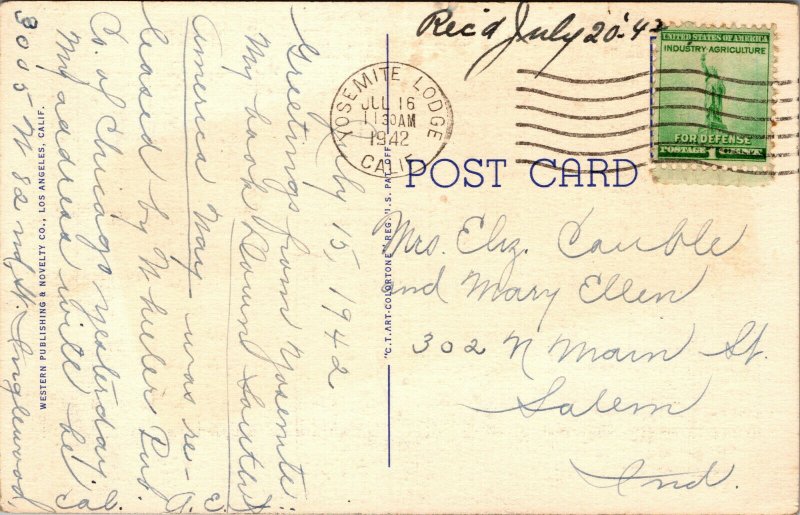 Rec'd July 20 - 42
YOSEMITE LODGE
JUL 16
11 30 AM
1942
CALIF.
UNITED STATES OF AMERICA
INDUSTRY-AGRICULTURE
FOR DEFENSE
POSTAGE 1 CENT
POST CARD
July 15, 1942
Greetings from Yosemite.
My book Down
America Way was re-
leased by Wheeler Pub.
Co. of Chicago yesterday.
My address will be
3005 W 82nd St. Inglewood,
Cal.
A. E.
WESTERN PUBLISHING & NOVELTY CO., LOS ANGELES, CALIF.
"C.T. ART-COLORTONE" REG. U.S. PAT. OFF.
Mrs. Eliz. Cauble
and Mary Ellen
302 N Main St.
Salem
Ind.